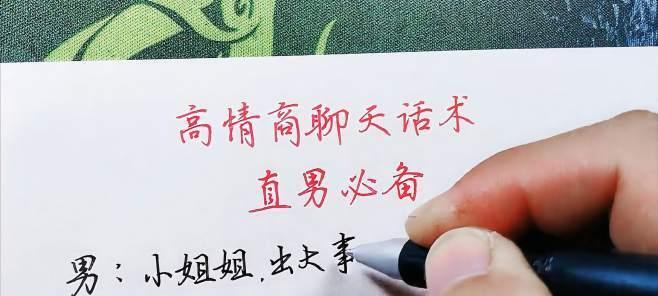 高情商聊天话术
直男必备
男：小姐姐，出大事